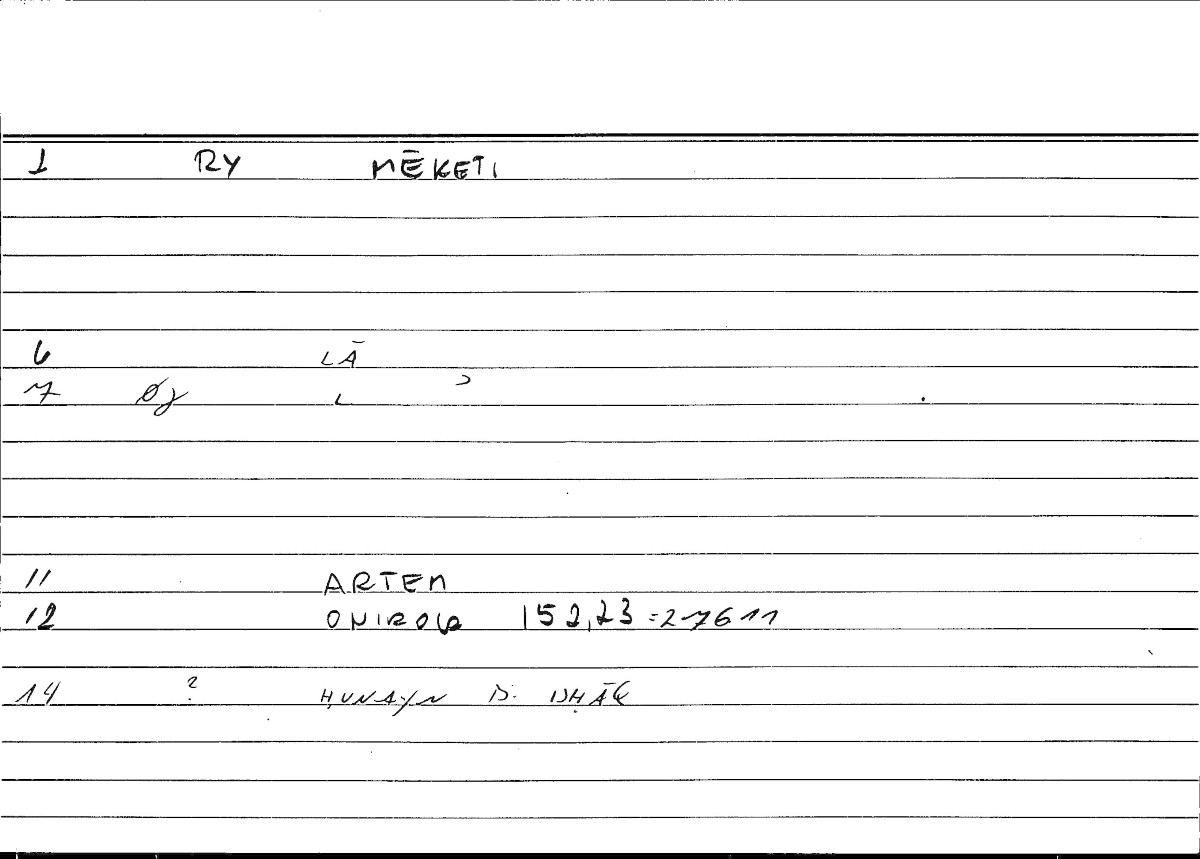 1 RY MĒKETI
6 LĀ
7 L ʾ
11 ARTEM
12 ONIROCR 152,23 = 276 11
14 ? ḤUNAYN B. ISḤĀQ